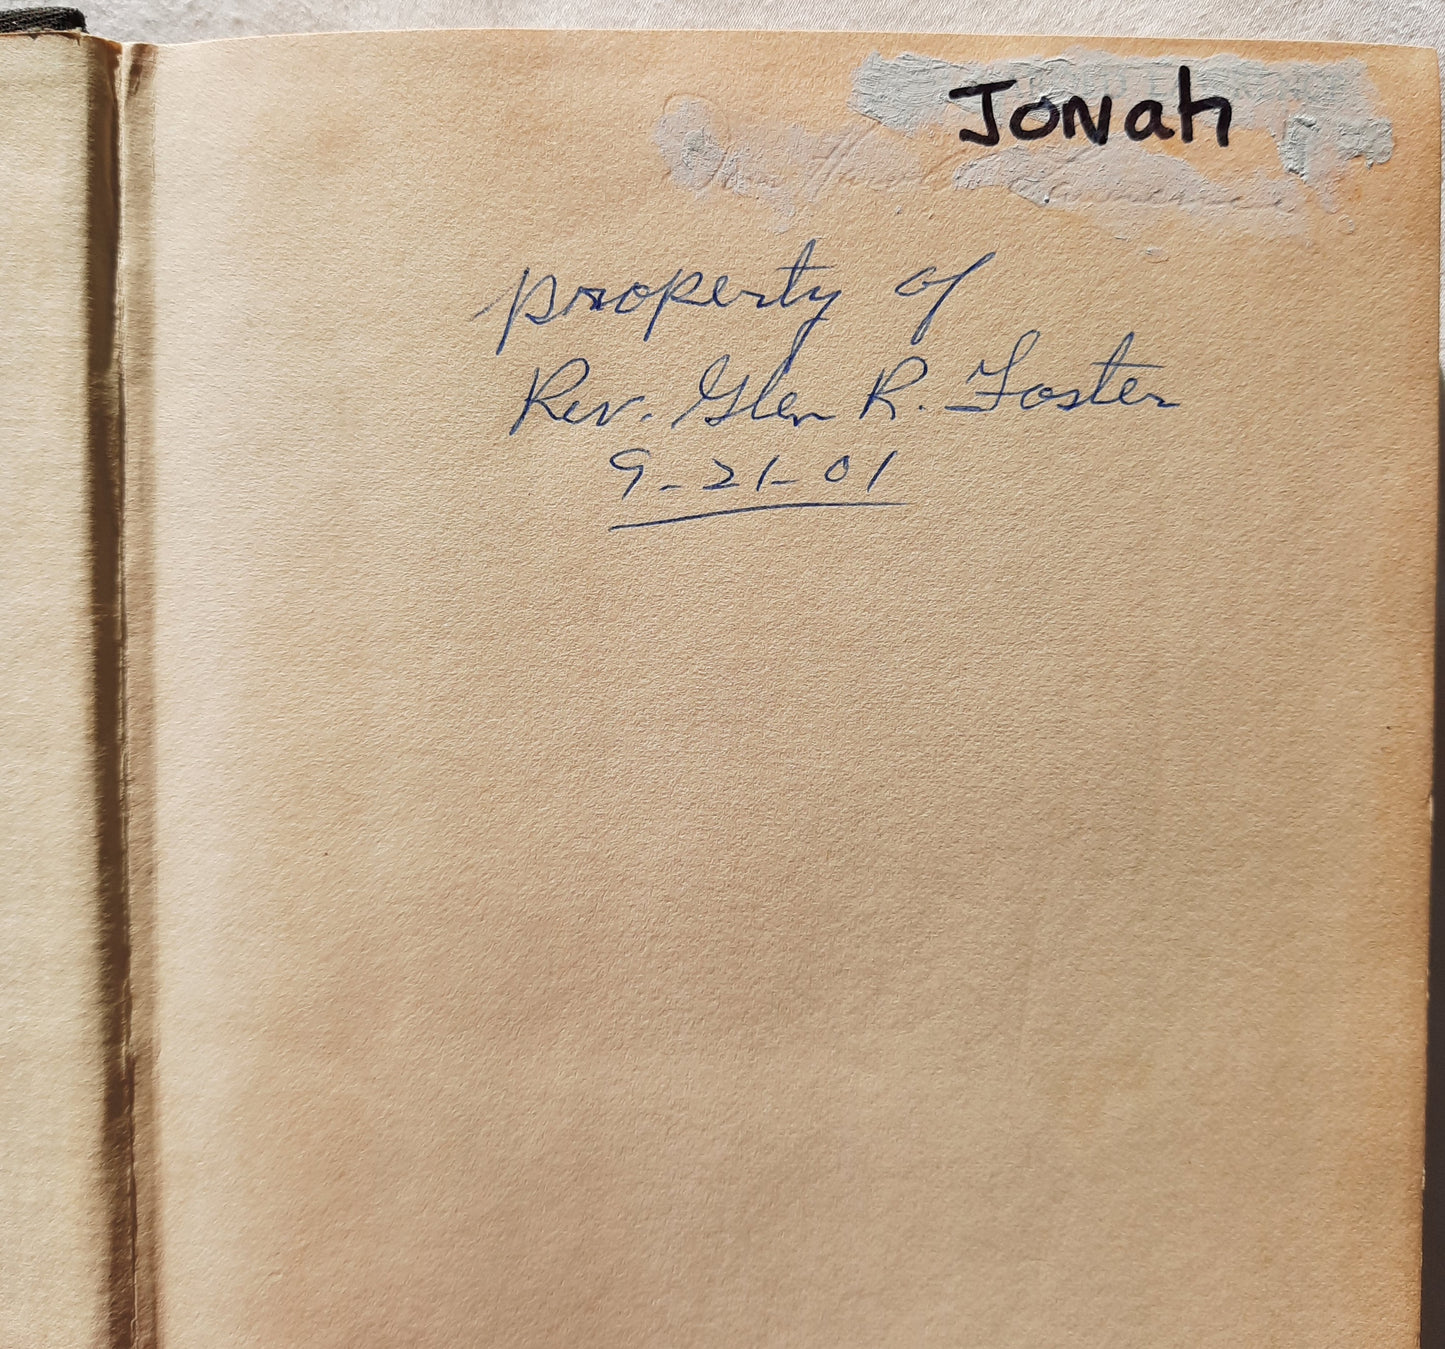 Jonah
property of
Rev. Glen R. Foster
9-21-01